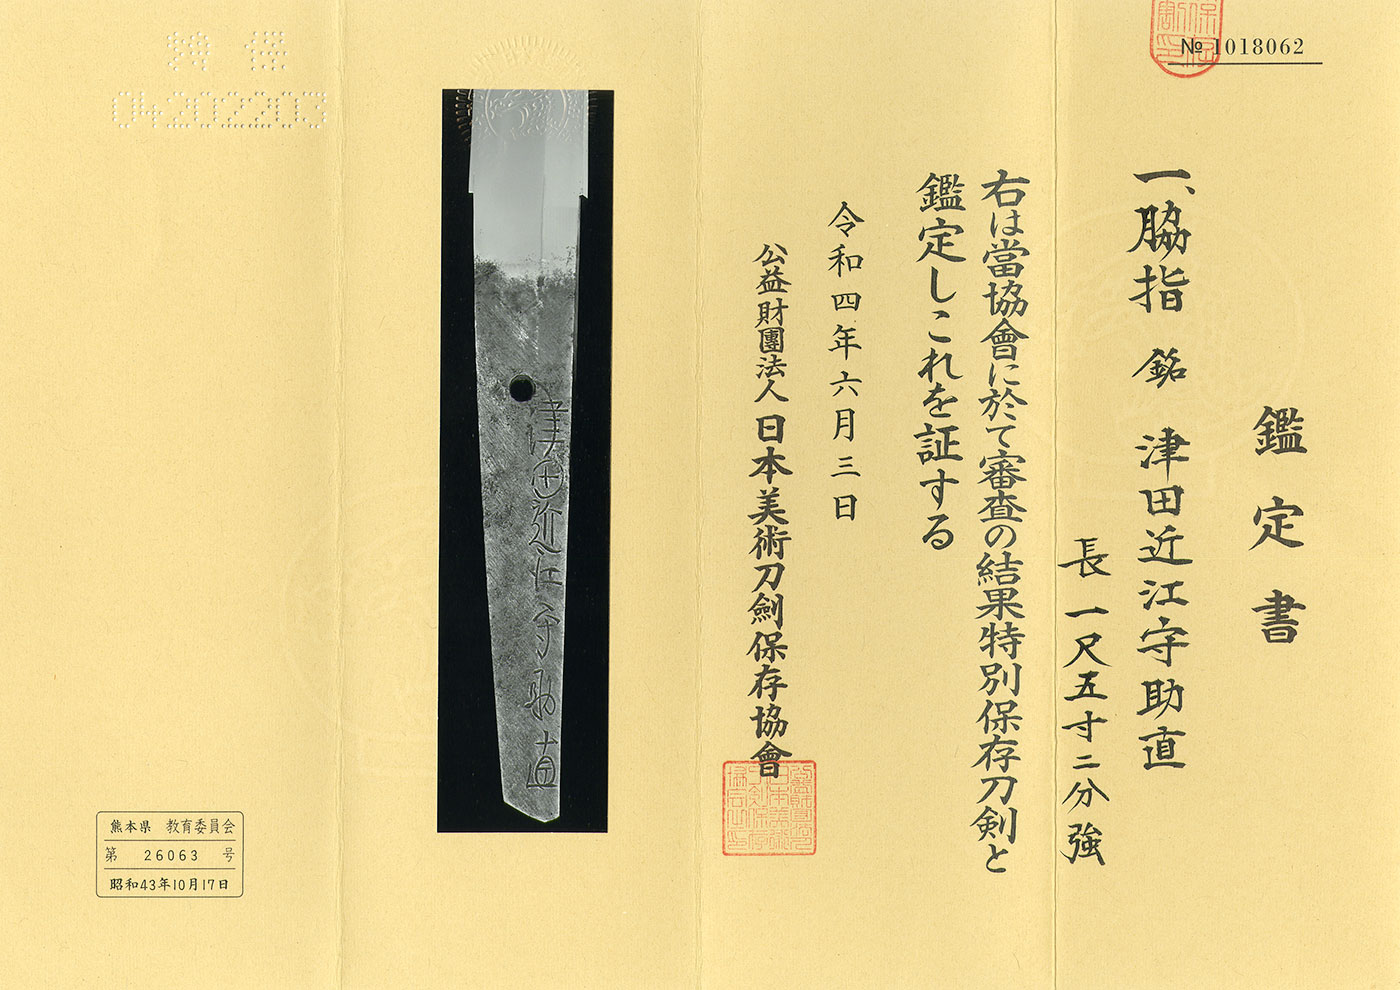 № 1018062
鑑定書
一、脇指 銘 津田近江守助直
長一尺五寸二分強
右は當協會に於て審査の結果特別保存刀剣と
鑑定しこれを証する
令和四年六月三日
公益財團法人 日本美術刀劍保存協會
津田近江守助直
04202203
熊本県 教育委員会
第 26063 号
昭和43年10月17日